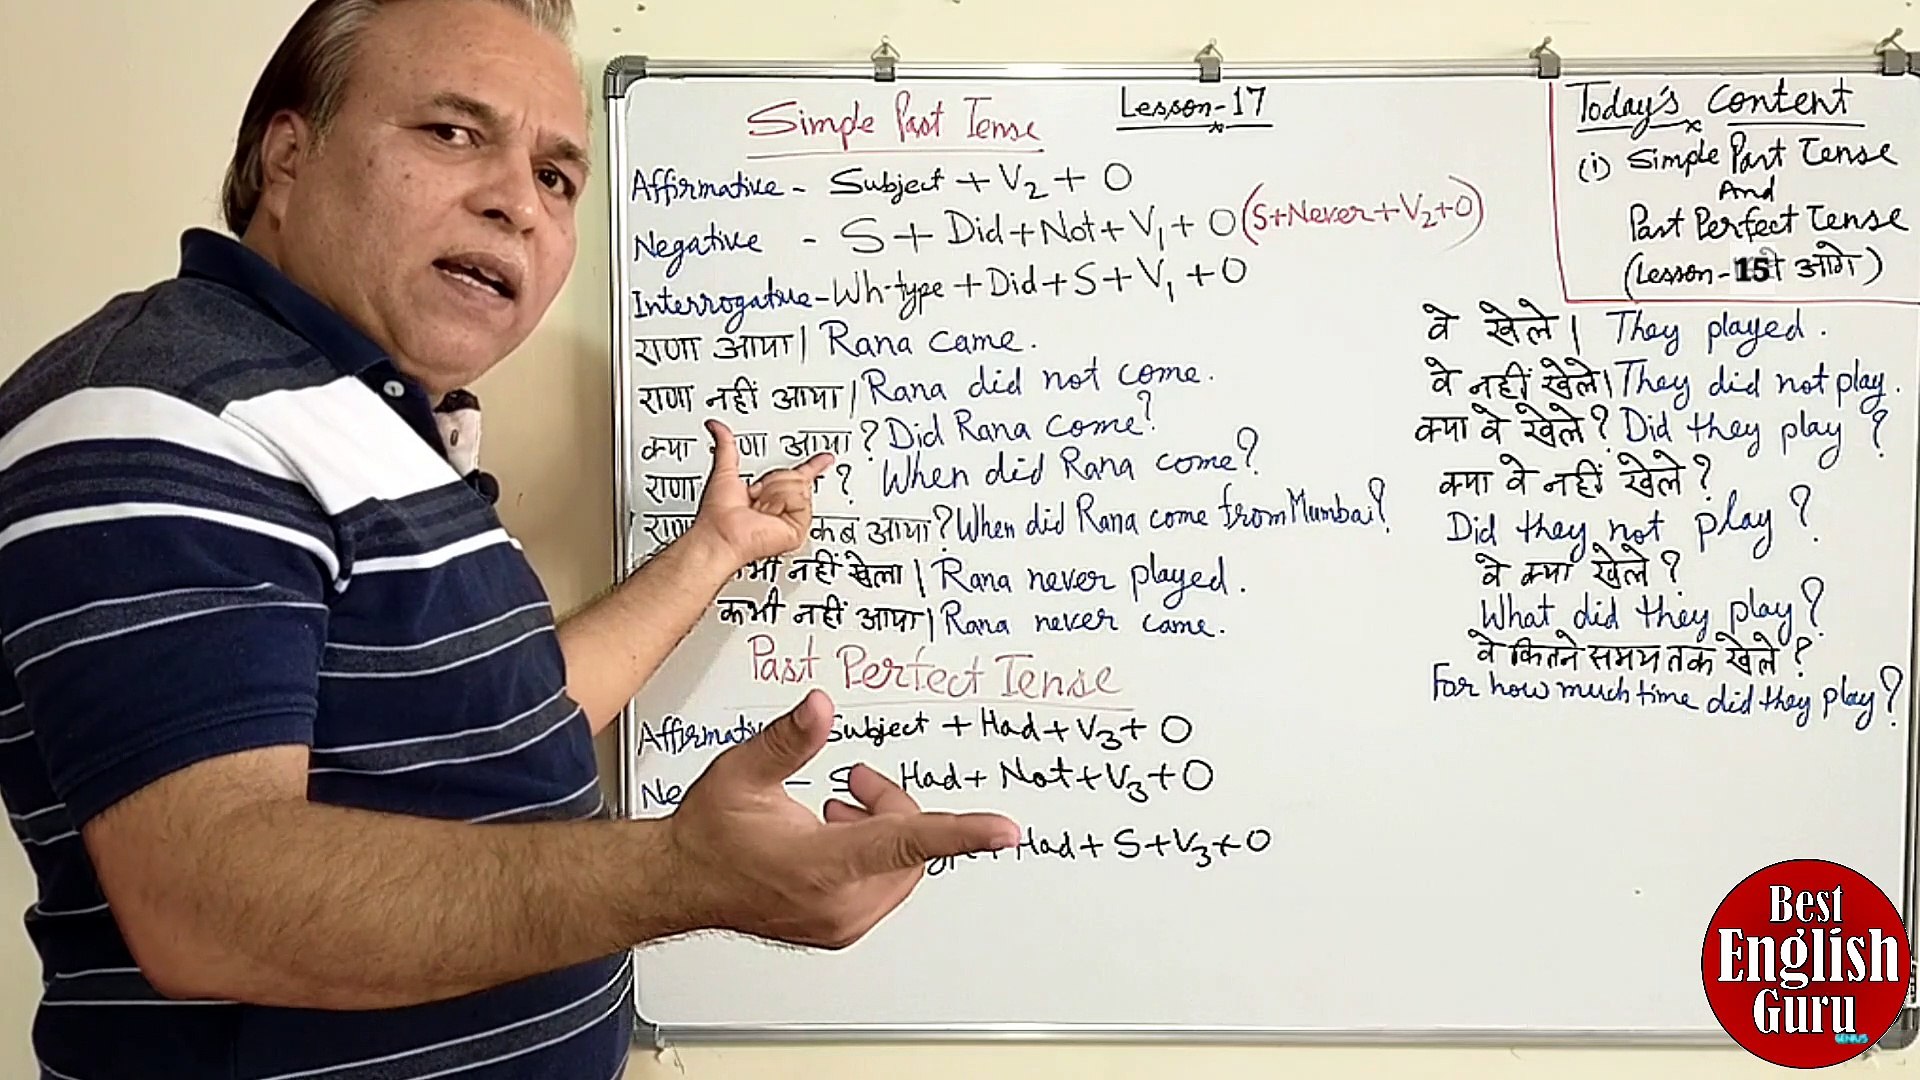 Simple Past Tense
Lesson-17
Affirmative - Subject + V₂ + O
Negative - S + Did + Not + V₁ + O (S+Never+V₂+O)
Interrogative - Wh-type + Did + S + V₁ + O
राणा आया | Rana came.
राणा नहीं आया | Rana did not come.
क्या आया ? Did Rana come?
राणा ? When did Rana come?
कब आया ? When did Rana come from Mumbai?
नहीं खेला | Rana never played.
कभी नहीं आया | Rana never came.
Past Perfect Tense
Subject + Had + V₃ + O
- S Had + Not + V₃ + O
Had + S + V₃ + O
Today's Content
(i) Simple Past Tense
And
Past Perfect Tense
(Lesson - 15 आगे)
वे खेले | They played.
वे नहीं खेले | They did not play.
क्या वे खेले ? Did they play ?
क्या वे नहीं खेले ?
Did they not play ?
वे क्या खेले ?
What did they play ?
वे कितने समय तक खेले ?
For how much time did they play ?
Best
English
Guru
GENIUS